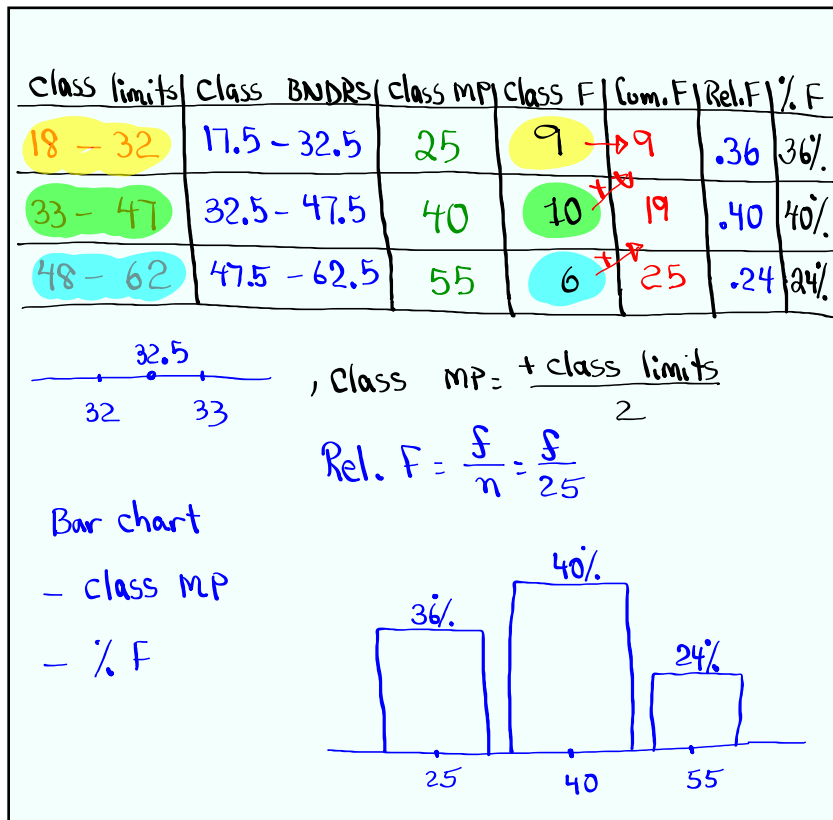 class limits Class BNDRS Class MP Class F Cum. F Rel. F % F
18 – 32 17.5 – 32.5 25 9 → 9 .36 36%
33 – 47 32.5 – 47.5 40 10 + 19 .40 40%
48 – 62 47.5 – 62.5 55 6 + 25 .24 24%
32.5
32 33
, Class MP = + class limits / 2
Rel. F = f/n = f/25
Bar chart
– class MP
– % F
36% 40% 24%
25 40 55